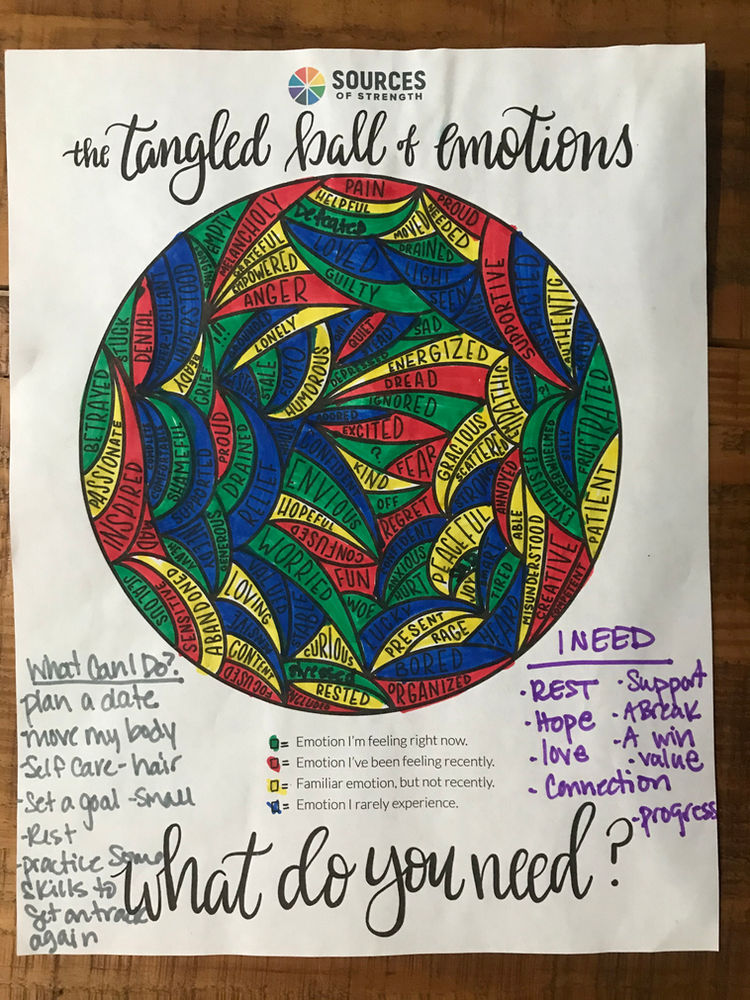 SOURCES
OF STRENGTH
the tangled ball of emotions
PAIN
HELPFUL
Defeated
MOVED
NEEDED
PROUD
EMPTY
MELANCHOLY
GRATEFUL
EMPOWERED
ANGER
LOVED
GUILTY
DRAINED
LIGHT
SEEN
SUPPORTIVE
DISTRACTED
AUTHENTIC
STUCK
DENIAL
UNDERSTOOD
READY
GRIEF
!!!
LONELY
STALE
HUMOROUS
QUIET
SAD
DEPRESSED
ENERGIZED
DREAD
IGNORED
ADORED
EXCITED
?
KIND
FEAR
GRACIOUS
SCATTERED
EMPATHIC
?!
EXHAUSTED
OVERWHELMED
SILLY
FRUSTRATED
PATIENT
BETRAYED
PASSIONATE
INSPIRED
MAD
COMFORTABLE
SHAMEFUL
SUPPORTED
PROUD
DRAINED
RELIEF
GENEROUS
CONFIDENT
ENVIOUS
HOPEFUL
CONFUSED
WORRIED
FUN
OFF
REGRET
ANXIOUS
HURT
PEACEFUL
JOY
ANNOYED
ABLE
MISUNDERSTOOD
TIRED
CREATIVE
COMPETENT
JEALOUS
SENSITIVE
ABANDONED
HEAVY
LOVING
CONTENT
FOCUSED
WOE
LUCKY
CURIOUS
Stressed
RESTED
PRESENT
RAGE
BORED
HAPPY
ORGANIZED
What Can I Do?
plan a date
-move my body
-Self care - hair
-Set a goal - small
-Rest
-practice some
skills to
get on track
again
I NEED
· REST
· Hope
· love
· Connection
· Support
· A Break
· A win
· value
· progress
= Emotion I'm feeling right now.
= Emotion I've been feeling recently.
= Familiar emotion, but not recently.
= Emotion I rarely experience.
what do you need?